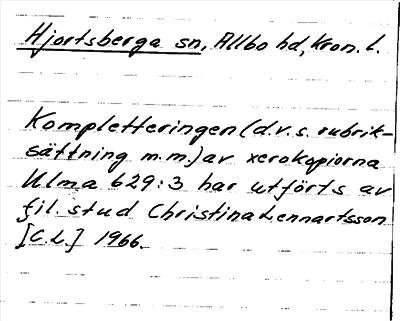 Hjortsberga sn, Allbo hd, Kron. l.
Kompletteringen (d.v.s. rubrik-
sättning m.m.) av xerokopiorna
Ulma 629:3 har utförts av
fil. stud Christina Lennartsson
[C.L.] 1966.